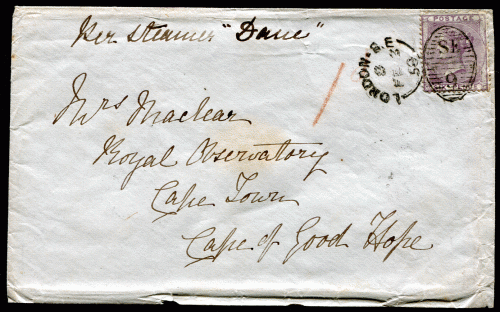 Per Steamer "Dane"
LONDON-S.E
8
FE 3
59
POSTAGE
SE
9
Mrs Maclear
Royal Observatory
Cape Town
Cape of Good Hope